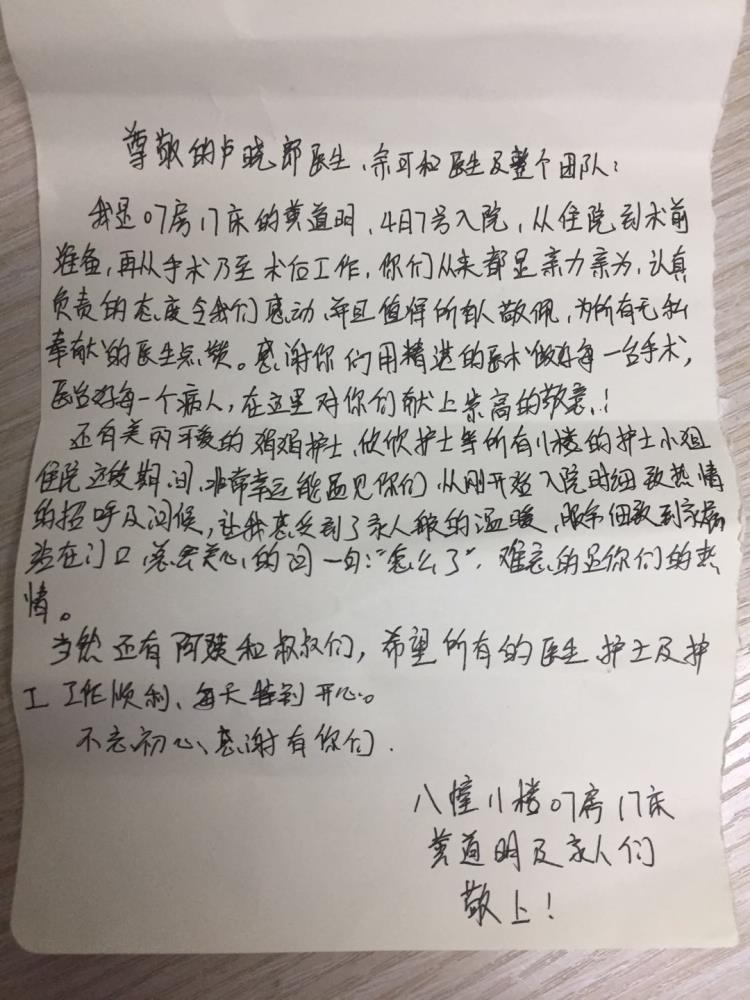 尊敬的卢晓郎医生、余可和医生及整个团队：
我是07房17床的黄道明，4月7号入院，从住院到术前
准备，再从手术乃至术后工作，你们从来都是亲力亲为，认真
负责的态度令我们感动，并且值得所有人敬佩，为所有无私
奉献的医生点赞。感谢你们用精湛的医术做好每一台手术，
医治好每一个病人，在这里对你们献上崇高的敬意！
还有美丽可爱的娟娟护士、欣欣护士等所有11楼的护士小姐
住院这段期间，非常幸运能遇见你们 从刚开始入院时细致热情
的招呼及问候，让我感受到了家人般的温暖，服务细致到家属
站在门口，总会关心的问一句："怎么了"，难忘的是你们的热
情。
当然还有阿姨和叔叔们，希望所有的医生、护士及护
工 工作顺利、每天 开心。
不忘初心、感谢有你们.
八幢11楼07房17床
黄道明及家人们
敬上！